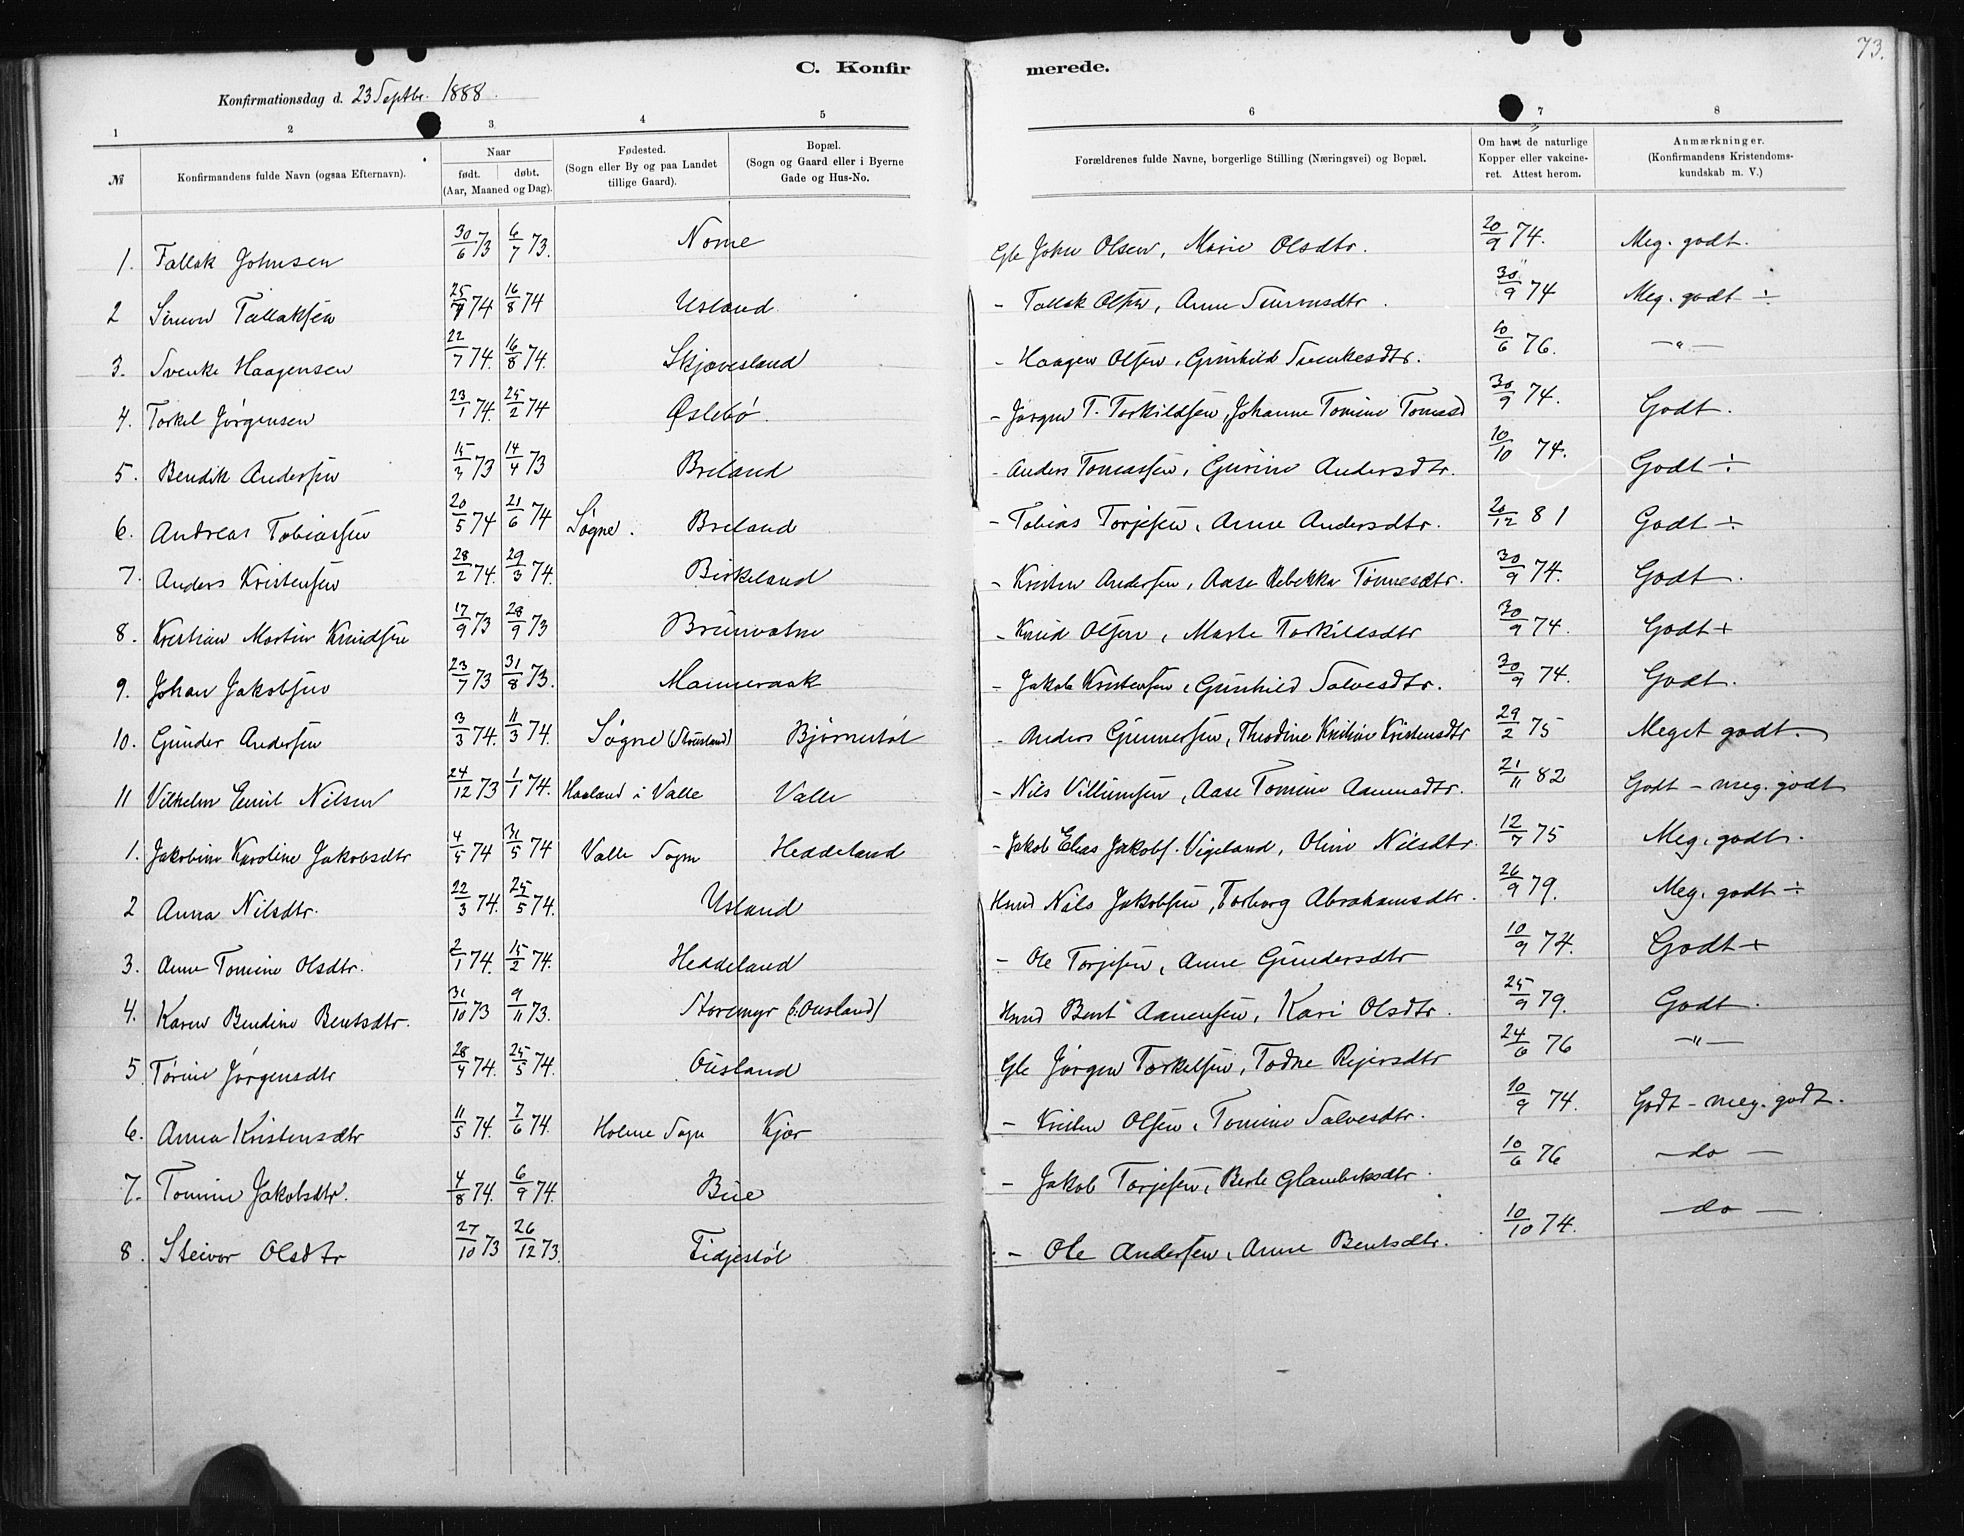 73.
C. Konfirmerede.
Konfirmationsdag d. 23 Septbr. 1888.
1 2 3 4 5 6 7 8
№ Konfirmandens fulde Navn (ogsaa Efternavn). Naar født. døbt. (Aar, Maaned og Dag). Fødested. (Sogn eller By og paa Landet tillige Gaard). Bopæl. (Sogn og Gaard eller i Byerne Gade og Hus-No. Forældrenes fulde Navne, borgerlige Stilling (Næringsvei) og Bopæl. Om havt de naturlige Kopper eller vakcineret. Attest herom. Anmærkninger. (Konfirmandens Kristendomskundskab m. V.)
1. Tallak Johnsen 30/6 73 6/7 73. Nome Gle John Olsen, Marie Olsdtr. 20/9 74. Meg. godt.
2 Simon Tallaksen 74 16/8 74 Usland. - Tallak Olsen, Anne Simonsdtr. 30/9 74 Meg. godt ÷
3. Svenke Haagensen 22/7 74. 16/8 74. Skjævesland - Haagen Olsen, Gunhild Svenkesdtr. 10/6 76. —"—
4. Torkel Jørgensen 23/1 74. 25/2 74 Øslebø. - Jørgen T. Torkildsen, Johanne Tomine Tomasd 30/9 74. Godt.
5. Bendik Andersen 15/3 73 14/4 73 Breland - Anders Tomassen, Gurine Andersdtr. 10/10 74. Godt ÷
6. Andreas Tobiassen 20/5 74 21/6 74 Søgne. Breland - Tobias Torjesen, Anne Andersdtr. 20/12 81 Godt ÷
7. Anders Kristensen 28/2 74. 29/3 74. Birkeland - Kristen Andersen, Aase Rebekka Tønnesdtr. 30/9 74. Godt.
8. Kristian Martin Knudsen 17/9 73 28/9 73 Brunvatne - Knud Olsen, Marte Torkildsdtr 30/9 74. Godt +
9. Johan Jakobsen 23/7 73 31/8 73. Mannevaak - Jakob Kristensen, Gunhild Salvesdtr. 30/9 74. Godt.
10. Gunder Andersen 3/3 74. 11/3 74. Søgne (Stusland) Bjørnestøl - Anders Gunnersen, Theodine Kristine Kristensdtr 29/2 75 Meget godt.
11 Vilhelm Emil Nilsen 24/12 73 1/1 74. Haaland i Valle Valle - Nils Villumsen, Aase Tomine Aanensdtr. 21/11 82 Godt - meg. godt
1. Jakobine Karoline Jakobsdtr 4/5 74 31/5 74 Valle Sogn Heddeland - Jakob Elias Jakobs. Vigeland, Oline Nilsdtr. 12/7 75 Meg. godt.
2 Anna Nilsdtr. 22/3 74. 25/5 74. Usland Hmd Nils Jakobsen, Torborg Abrahamsdtr. 26/9 79. Meg. godt ÷
3. Anne Tomine Olsdtr. 2/1 74. 15/2 74. Heddeland - Ole Torjesen, Anne Gundersdtr 10/9 74. Godt +
4. Karen Bendine Bentsdtr. 31/10 73 9/11 73. Storemyr (Ousland) Hmd Bent Aanensen, Kari Olsdtr. 25/9 79. Godt.
5 Tørine Jørgensdtr 74. 25/5 74. Ousland Gle Jørgen Torkelsen, Todne Reiersdtr 24/6 76 —"—
6. Anna Kristensdtr 11/5 74. 7/6 74. Holme Sogn Kjør - Kristen Olsen, Tomine Salvesdtr. 10/9 74. Godt - meg. godt.
7. Tomine Jakobsdtr. 4/8 74. 6/9 74. Bue - Jakob Torjesen, Berte Glambeksdtr. 10/6 76 — do —
8. Steivor Olsdtr 27/10 73 26/12 73. Fidjestøl - Ole Andersen, Anne Bentsdtr. 10/10 74. — do —